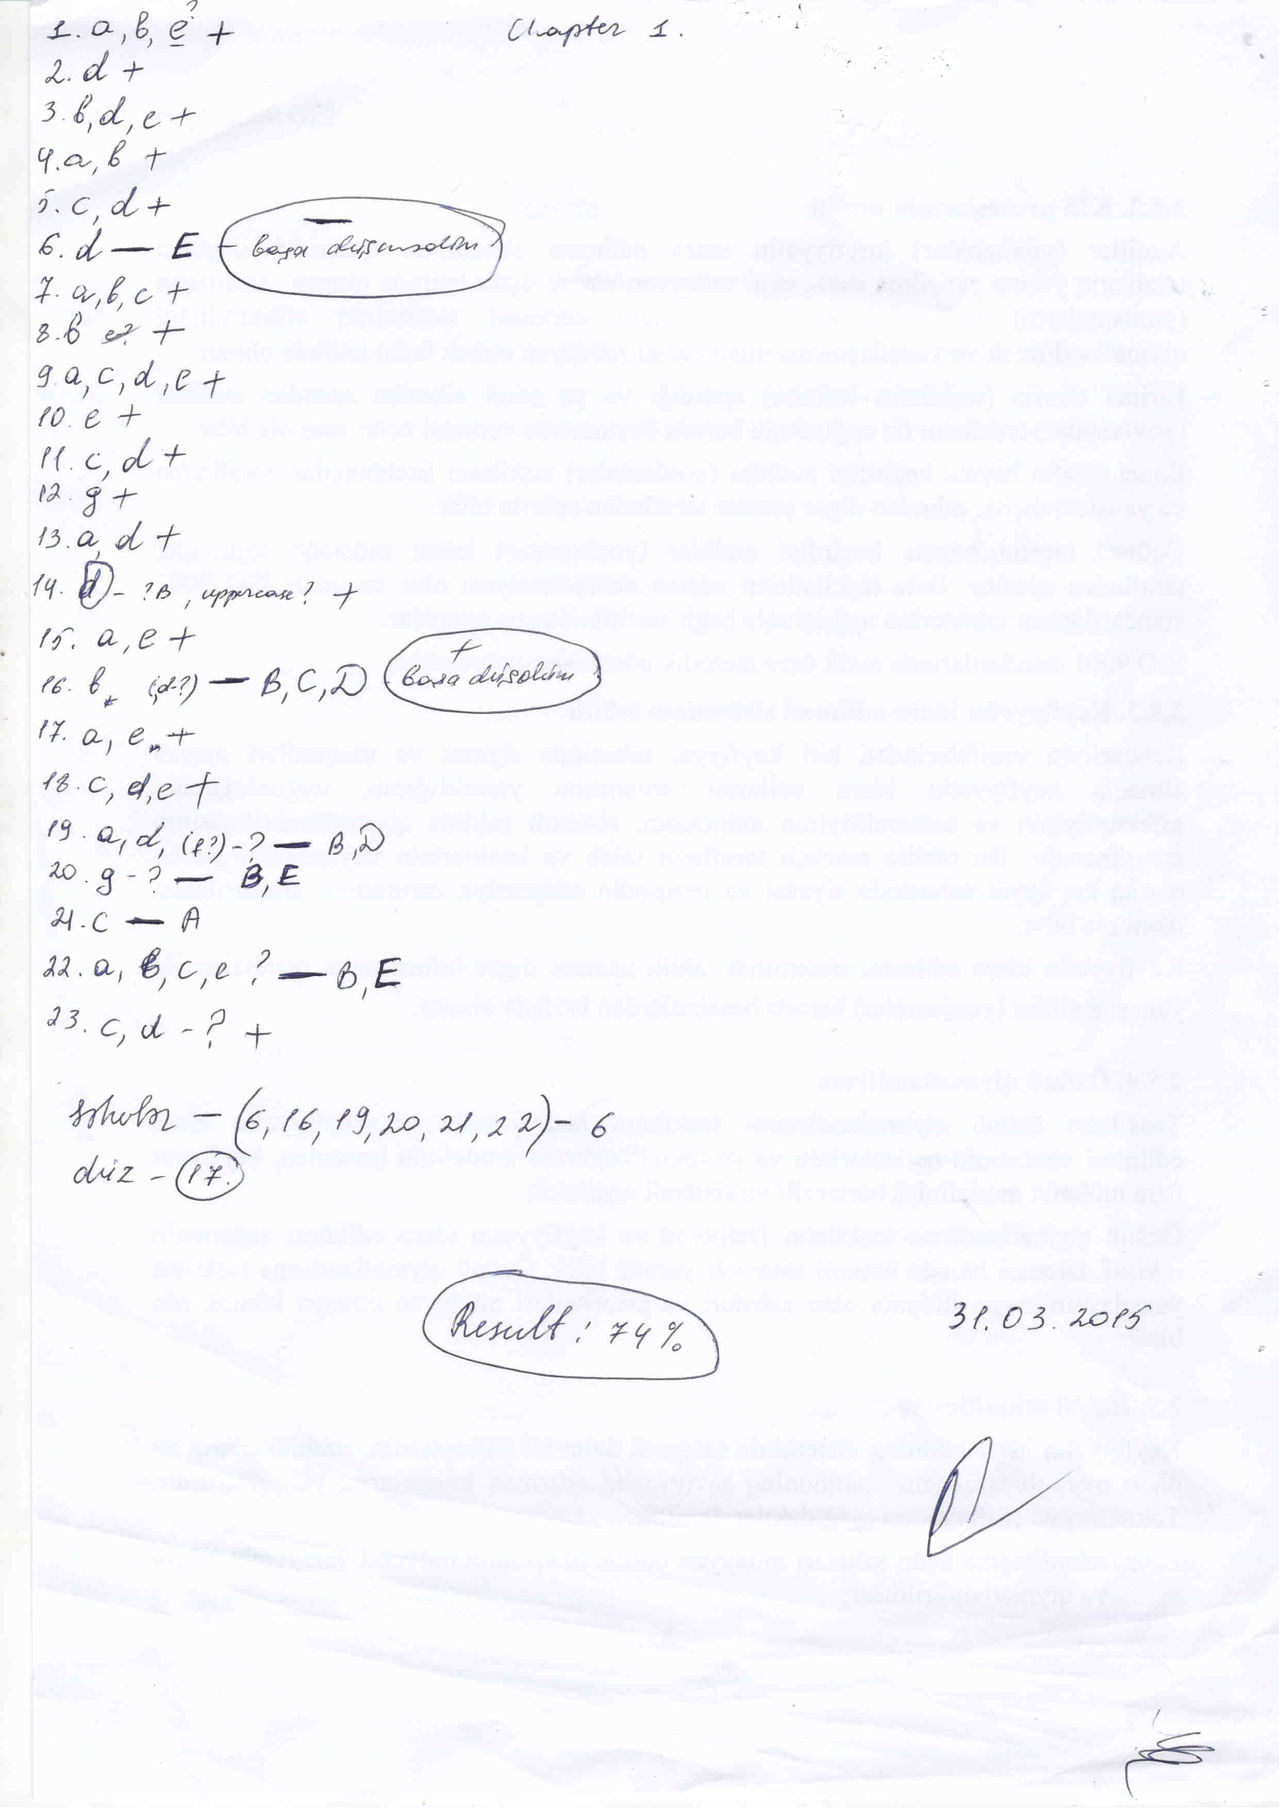 Chapter 1.
1. a, b, e ? +
2. d +
3. b, d, e +
4. a, b +
5. c, d +
6. d — E -
7. a, b, c +
8. b e? +
9. a, c, d, e +
10. e +
11. c, d +
12. g +
13. a, d +
14. d - ? B, uppercase? +
15. a, e +
16. b (d?) — B, C, D
17. a, e +
18. c, d, e +
19 a, d, (f?) - ? — B, D
20. g - ? — B, E
21. c — A
22. a, b, c, e ? — B, E
23. c, d - ? +
— (6, 16, 19, 20, 21, 22) - 6
düz - 17.
Result: 74%
31.03.2015